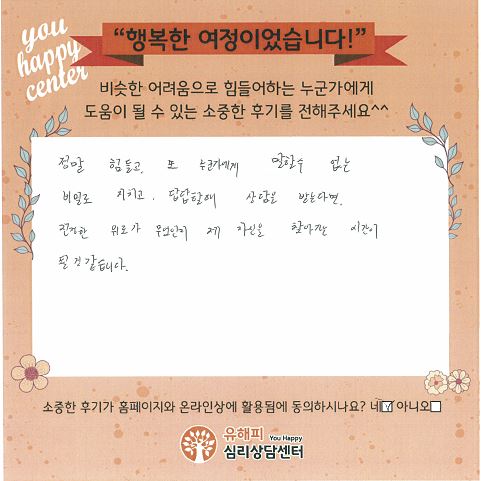 you
happy
center
“행복한 여정이었습니다!”
비슷한 어려움으로 힘들어하는 누군가에게
도움이 될 수 있는 소중한 후기를 전해주세요^^
정말 힘들고, 또 누군가에게 말할수 없는
비밀로 지치고, 답답할때 상담을 받는다면,
진정한 위로가 무엇인지 제 자신을 찾아가는 시간이
될 것 같습니다.
소중한 후기가 홈페이지와 온라인상에 활용됨에 동의하시나요? 네☑ 아니오☐
유해피 You Happy
심리상담센터